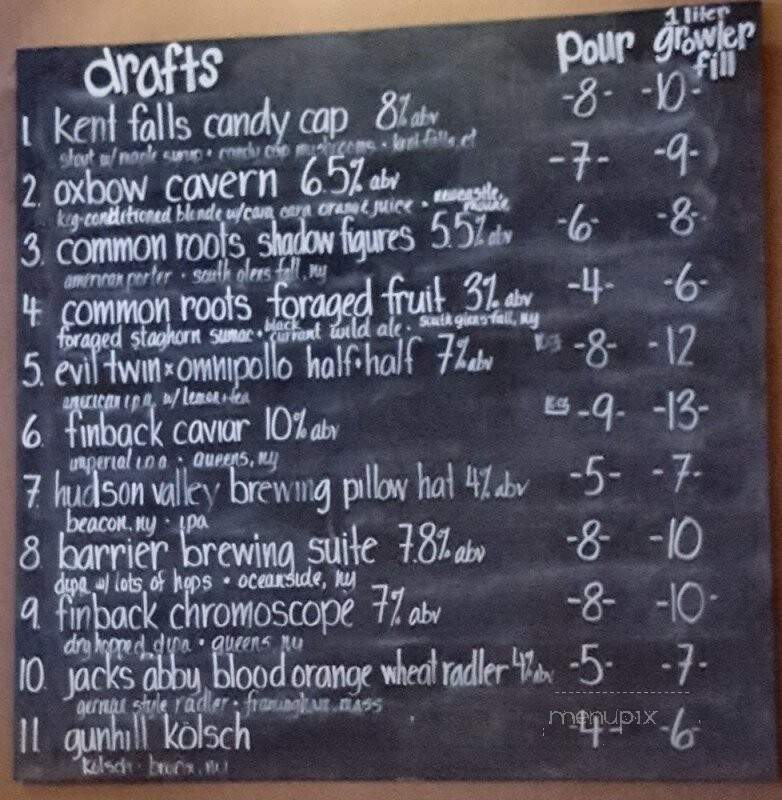 drafts pour 1 liter growler fill
1. kent falls candy cap 8% abv -8- -10-
stout w/ maple syrup • candy cap mushrooms • kent falls, ct
2. oxbow cavern 6.5% abv -7- -9-
keg-conditioned blonde w/ cara cara orange juice • newcastle, maine
3. common roots shadow figures 5.5% abv -6- -8-
american porter • south glens fall, ny
4. common roots foraged fruit 3% abv -4- -6-
foraged staghorn sumac • black currant wild ale • south glens fall, ny
5. evil twin x omnipollo half•half 7% abv -8- -12
american i.p.a. w/ lemon + tea
6. finback caviar 10% abv -9- -13-
imperial i.p.a • queens, ny
7. hudson valley brewing pillow hat 4% abv -5- -7-
beacon, ny • ipa
8. barrier brewing suite 7.8% abv -8- -10
dipa w/ lots of hops • oceanside, ny
9. finback chromoscope 7% abv -8- -10-
dry hopped dipa • queens ny
10. jacks abby blood orange wheat radler 4% abv -5- -7-
german style radler • framingham, mass
11 gunhill kölsch -4- -6-
kolsch • bronx, ny
menupix